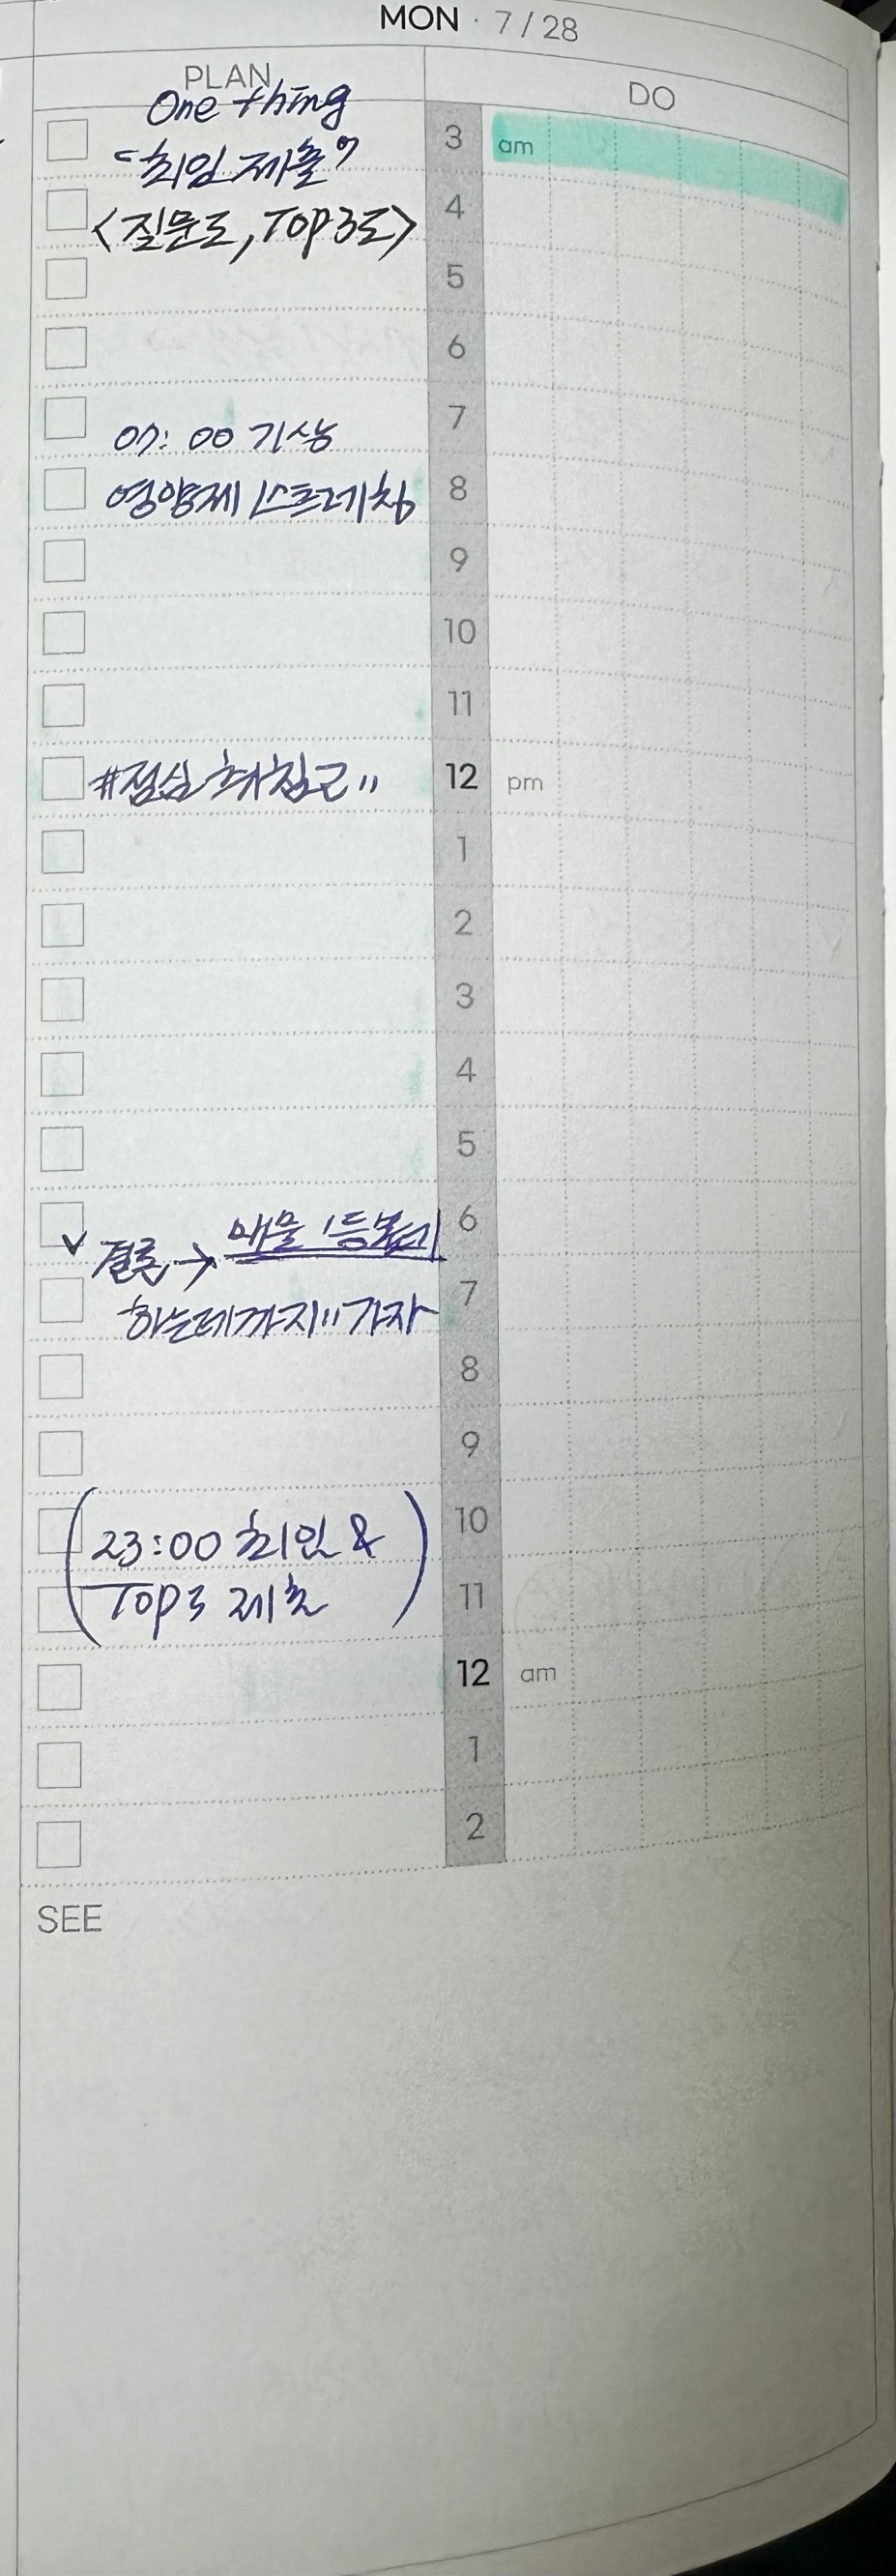 MON · 7 / 28
PLAN
DO
One thing
"최임 제출"
<질문도, TOP3도>
3 am
4
5
6
7
07: 00 기상
8
영양제 / 스트레칭
9
10
11
#점심
12 pm
1
2
3
4
5
6
결론 → 매물 1등뽑기
7
하는데까지!! 가자
8
9
10
23:00 최임 &
11
TOP3 제출
12 am
1
2
SEE